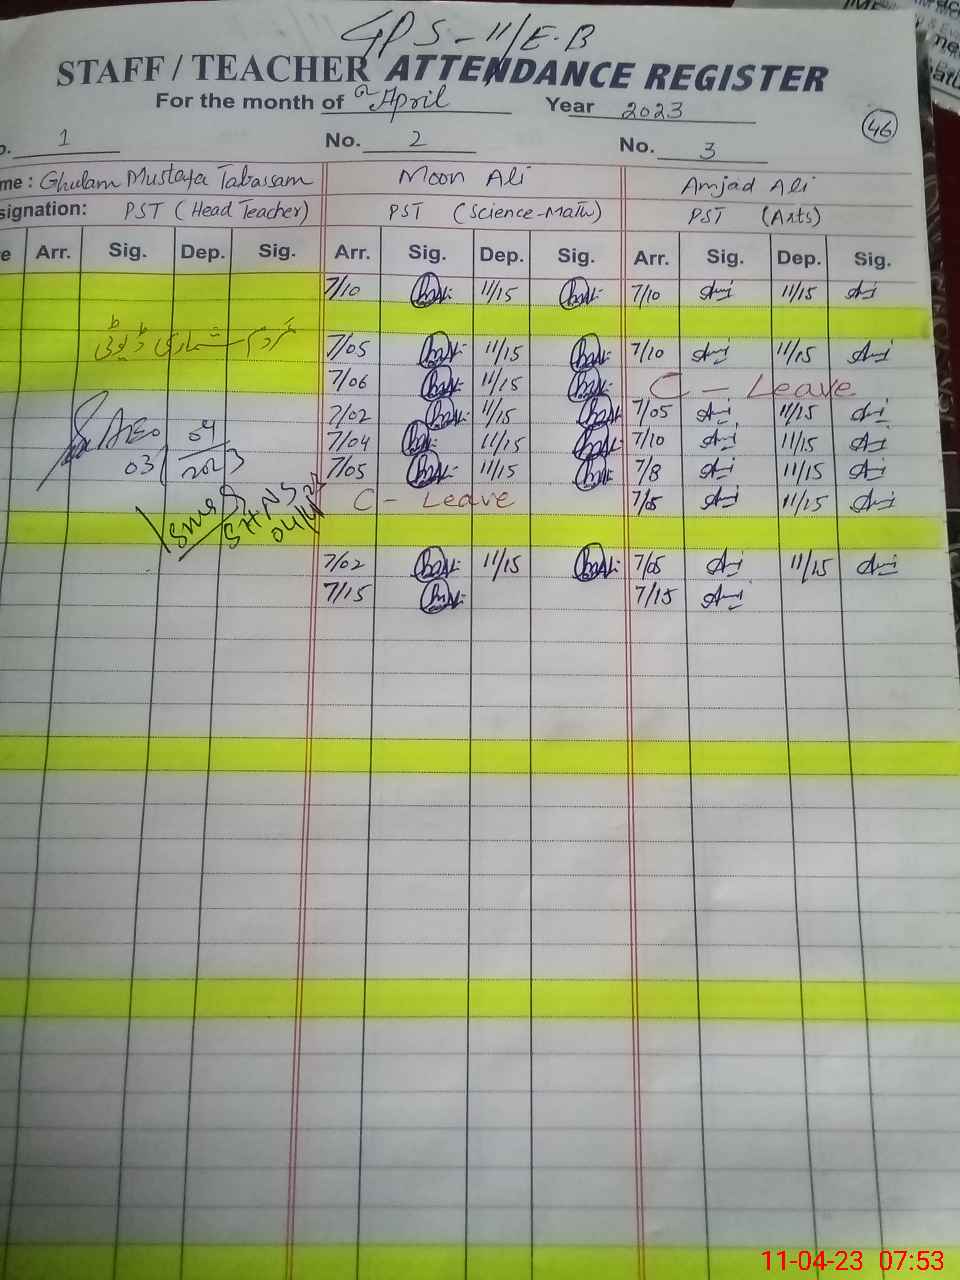 GPS-11/E.B
STAFF / TEACHER ATTENDANCE REGISTER
For the month of April Year 2023
46
1 No. 2 No. 3
me : Ghulam Mustafa Tabassam Moon Ali Amjad Ali
signation: PST (Head Teacher) PST (Science-Math) PST (Arts)
e Arr. Sig. Dep. Sig. Arr. Sig. Dep. Sig. Arr. Sig. Dep. Sig.
7/10 11/15 7/10 11/15
مردم شماری ڈیوٹی 7/05 11/15 7/10 11/15
7/06 11/15 C - Leave
7/02 11/15 7/05 11/15
AEO 04 7/04 11/15 7/10 11/15
03 2023 7/05 11/15 7/8 11/15
C - Leave 7/05 11/15
7/02 11/15 7/05 11/15
7/15 7/15
11-04-23 07:53